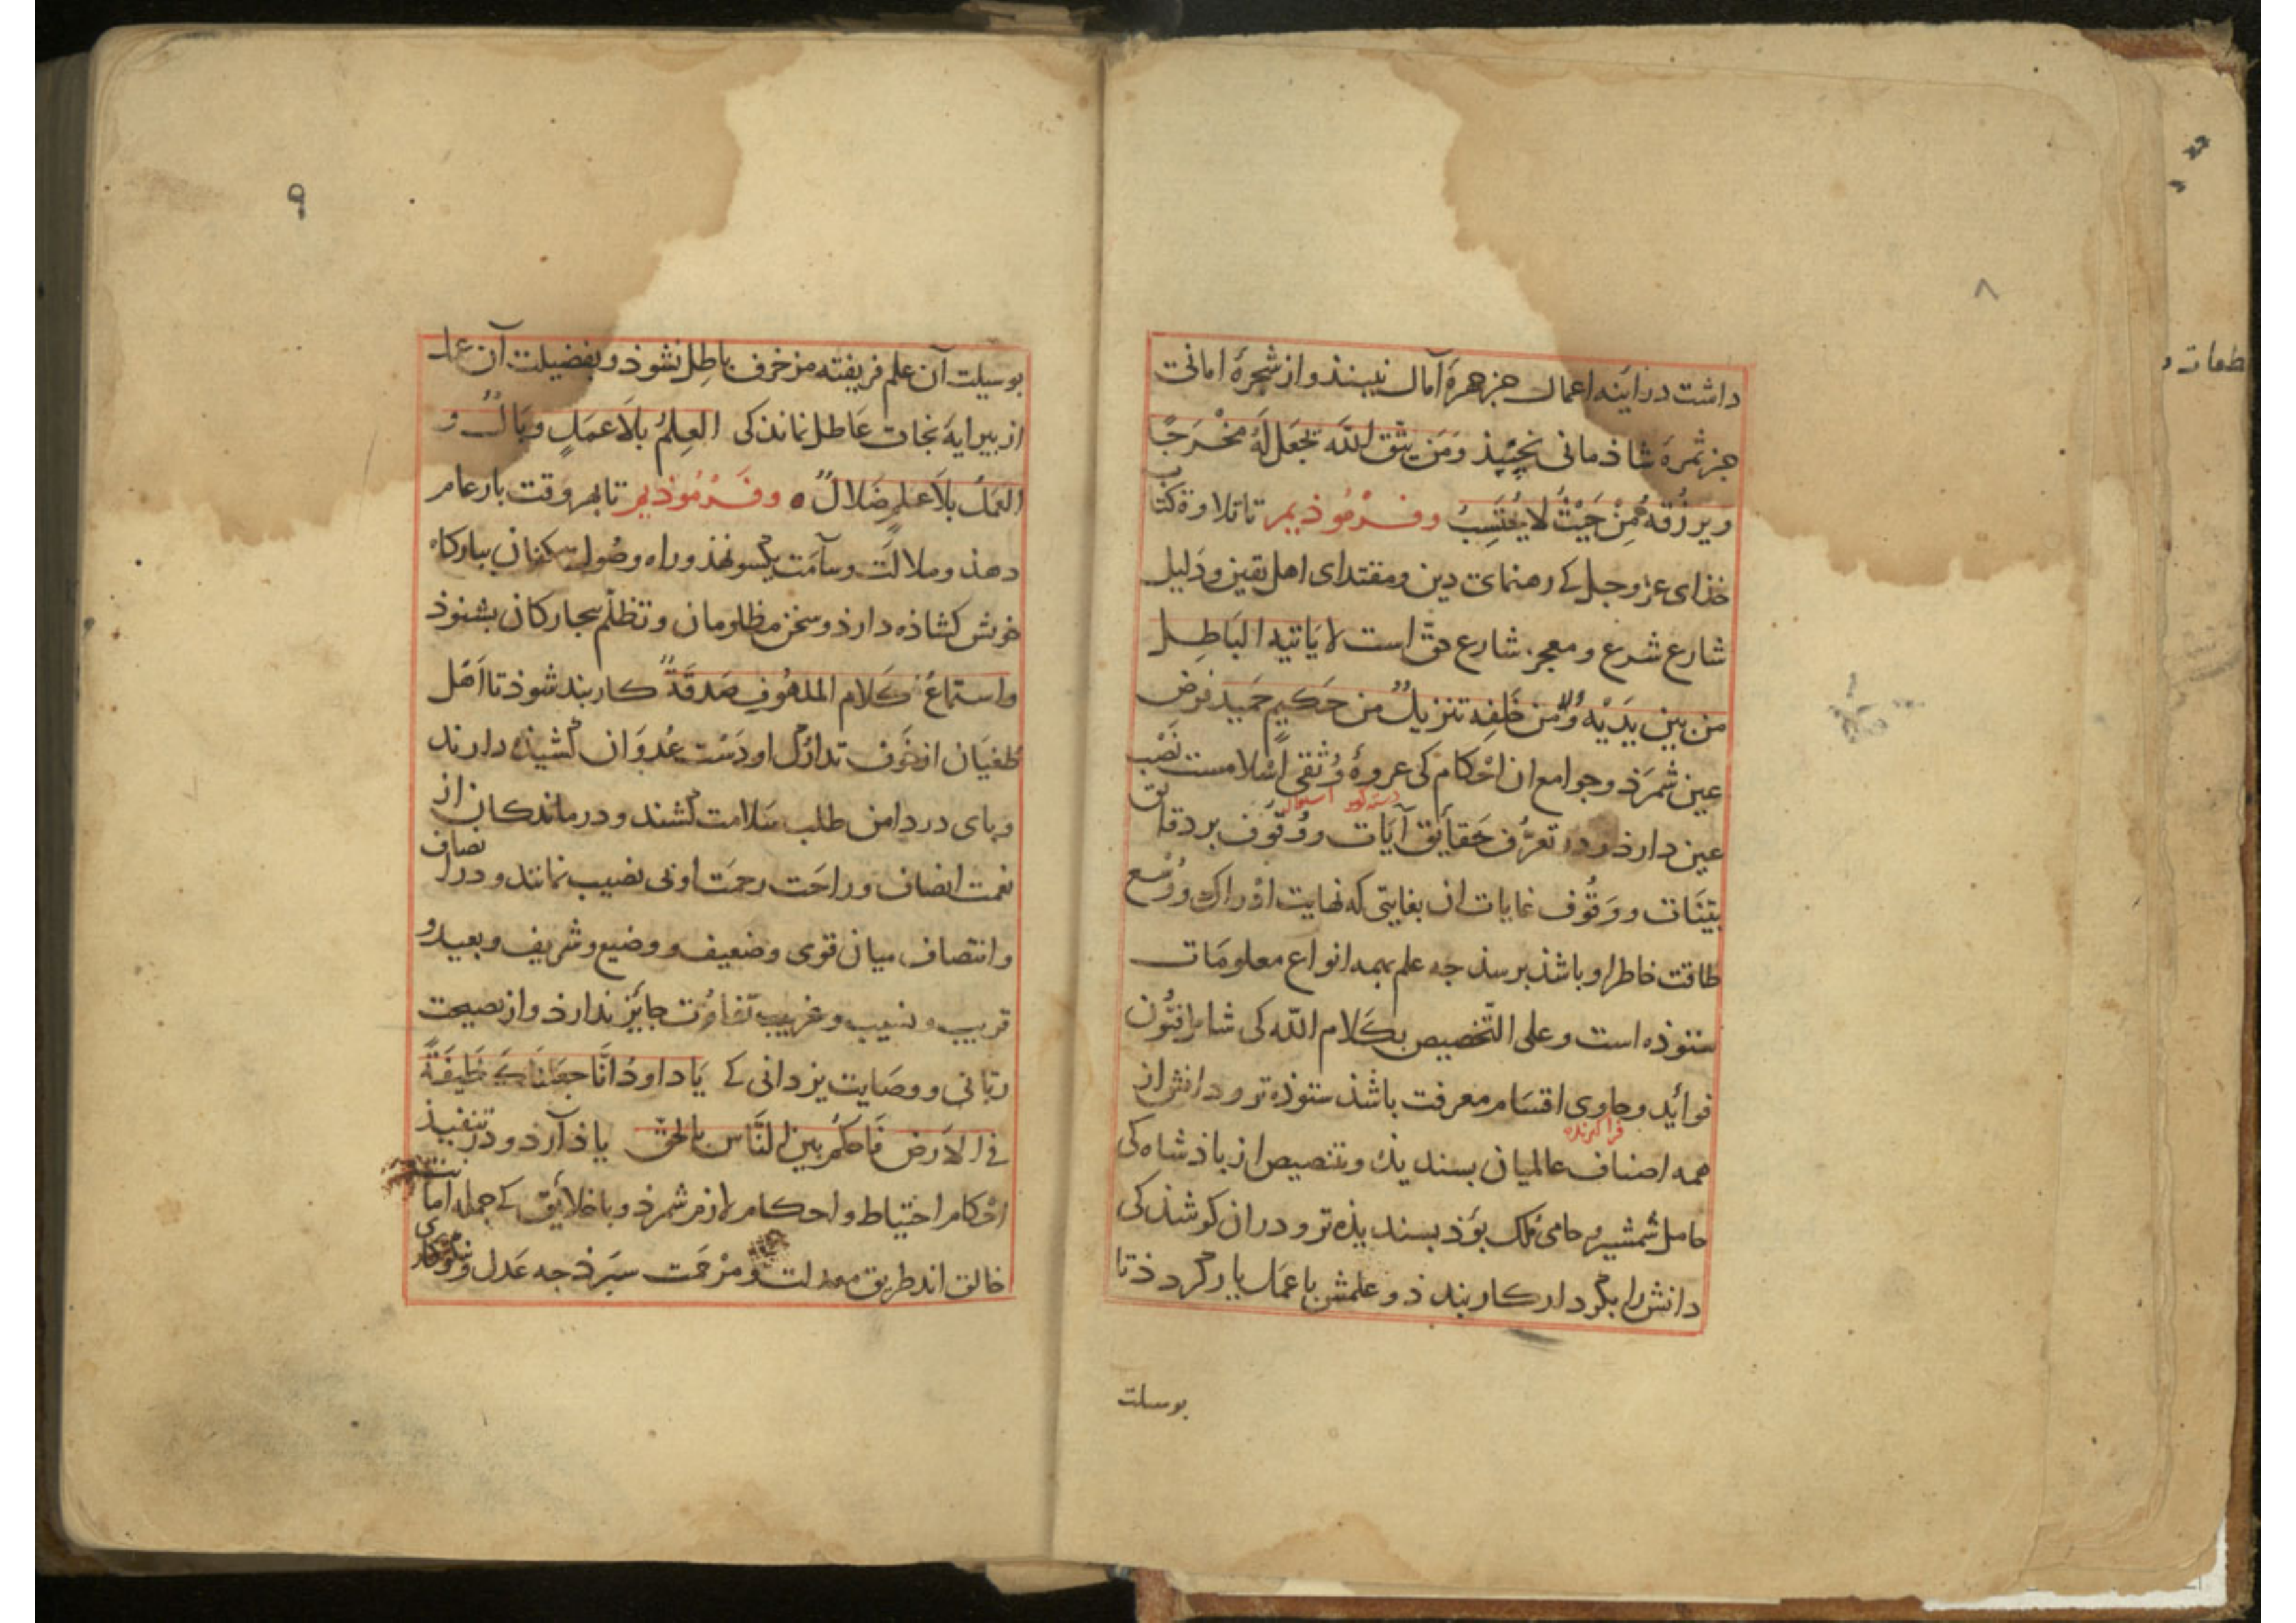 ۸
داشت در اینه اعمال جز جهرهٔ آمال نبیند و از شجرهٔ امانت
جز ثمرهٔ شاذمانی نچیند وَمَن يتّق اللّه يَجْعَل لَهُ مَخْرَجًا
ويرزُقه مِنْ حَيْثُ لا يحتَسِبُ وفرمُوذيم تا تلاوة كتاب
خذای عز وجل کے رهنمای دین و مقتدای اهل یقین و دَلیل
شارع شرع و معجز شارع حقّ است لا يَاتيه البَاطِل
من بين يَدَيْه وَلا من خَلفِه تنزيلٌ من حَكيم حَميد فرض
عین شمَرَذ و جوامع ان احْکام کی عروهٔ وُثقی اسْلامست نَصْب
عین دارذ و در تعرُّف حَقایٔق آیَات و وُقوُف بر دقایق
بیّنَات و وَقُوف غایات ان بغایتی که نهایت ادْراک و وُسع
طاقت خاطر او باشذ برسذ جه علم بهمه انواع معلومَات
ستوذه است و علی التّخصیص بکَلام اللّه کی شامل فنُون
فوائد و حاوی اقسَام معرفت باشذ ستوذه تر و دانش از
فرا کیرنده
همه اصناف عالمیان بسندیذه و بتنصیص از باذشاه کی
حامل شمشیر و حامی مُلک بوَذ بسندیذه تر و در ان کوشذ کی
دانش را بکردار کار بنذذ و علمش با عمَل یار کردذ تا
بوسیلت
۹
بوسیلت آن علم فریفته مزخرف باطِل نشوذ و بفضیلت آن عمل
از بیرایهٔ نجات عَاطل نماند کی العِلمُ بلَا عمَلٍ وبَالٌ و
العَمَلُ بلَا علمٍ ضَلالٌ ه وفَرْمُوذيم تا بهر وقت بار عام
دهذ و ملالت و سآمَت یکسو نهذ و راه وصُول متظلمان ببارکاه
خوش کشاذه دارذ و سخن مظلومان و تظلّم بیجارکان بشنوذ
و استماعُ كَلام الملهُوفِ صَدقَةٌ کار بند شوذ تا اَهْل
طغیَان از خَوف تدارُک او دَسْت عُدوَان کشیذه دارند
و بای در دامن طلب سَلامت کشند و درماندکان از
نعمت انصاف و راحَت رحمَت او بی نصیب نمانند و در انصاف
و انتصاف میان قوی و ضعیف و وضیع و شریف و بعید و
قریب و نسیب و غریب تفاوُت جایٔز ندارذ و از نصیحت
ربّانی و وصَایت یزدانی کے يَا داودُ انَّا جعَلنَاكَ خَليفَةً
في الارَض فَاحكُم بين النَّاس بالحق یاذ آرد و در تنفیذ
احْکام احتیاط و احکام لازم شمرذ و با خلایٔق کے جمله امانت
خالق اند طریق معدلت و مرْحمَت سبَرذ جه عَدل و نیکوکاری